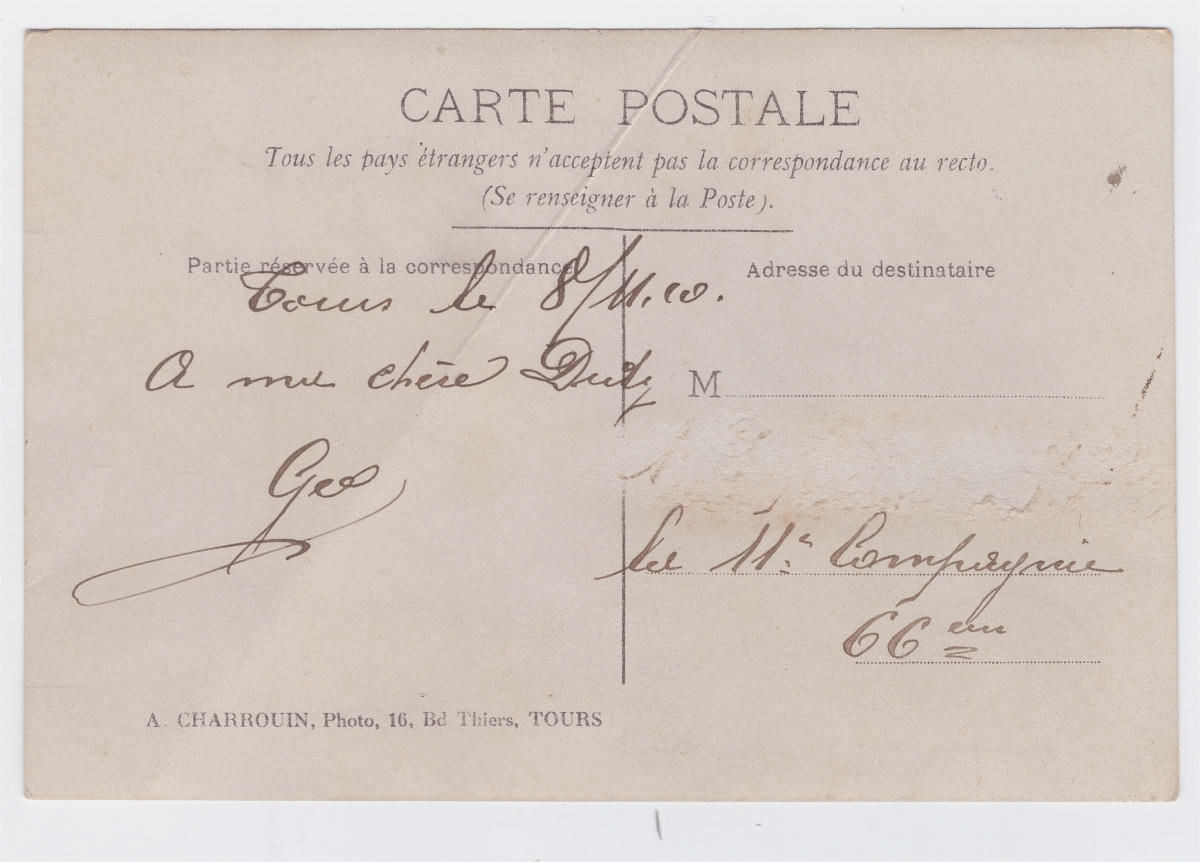 CARTE POSTALE
Tous les pays étrangers n'acceptent pas la correspondance au recto.
(Se renseigner à la Poste).
Partie réservée à la correspondance
Adresse du destinataire
Tours le 8/11.10.
A ma chère
M
Geo
la 11e Compagnie
66em
A. CHARROUIN, Photo, 16, Bd Thiers, TOURS